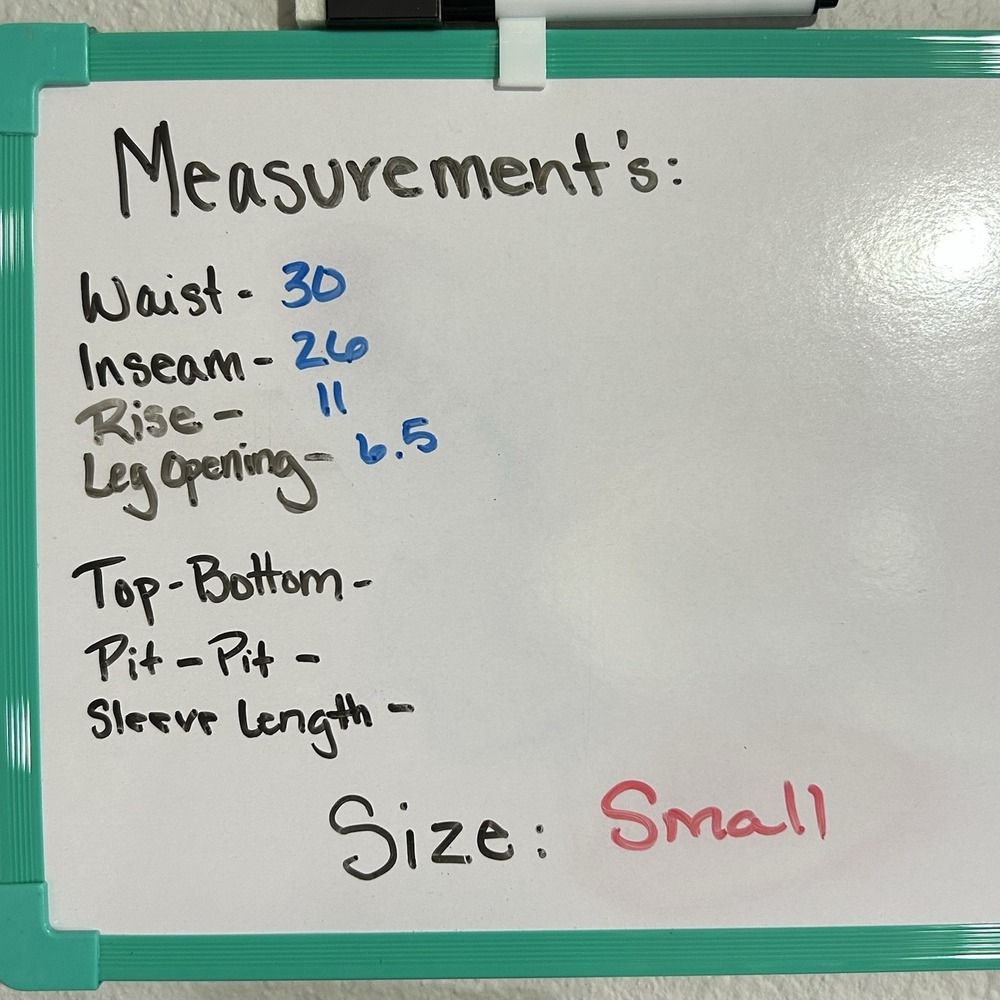 Measurement's:
Waist - 30
Inseam - 26
Rise - 11
Leg Opening - 6.5
Top - Bottom -
Pit - Pit -
Sleeve Length -
Size: Small